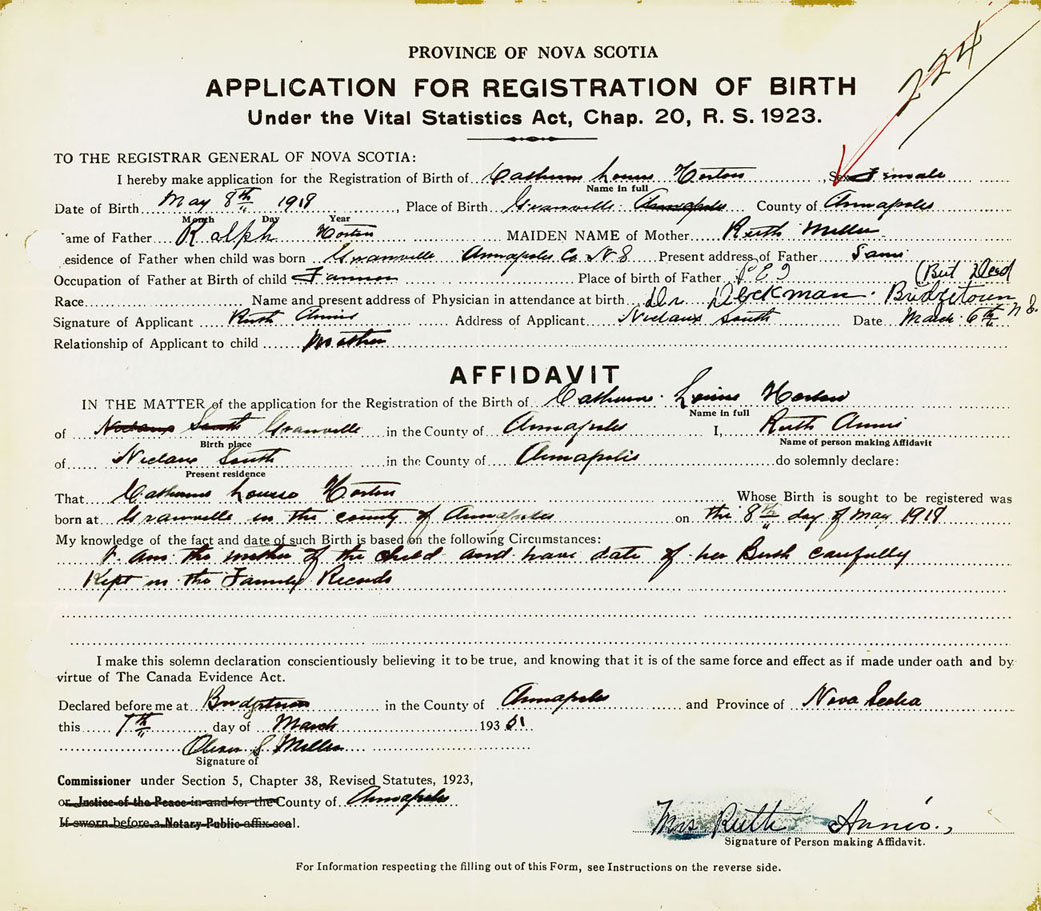 224
PROVINCE OF NOVA SCOTIA
APPLICATION FOR REGISTRATION OF BIRTH
Under the Vital Statistics Act, Chap. 20, R. S. 1923.
TO THE REGISTRAR GENERAL OF NOVA SCOTIA:
I hereby make application for the Registration of Birth of Catherine Louise Horton, Sex Female
Name in full
Date of Birth May 8th 1918, Place of Birth Granville Annapolis County of Annapolis
Month Day Year
ame of Father Ralph Horton MAIDEN NAME of Mother Ruth Miller
esidence of Father when child was born Granville Annapolis Co. N S Present address of Father Same
Occupation of Father at Birth of child Farmer Place of birth of Father P E I (But Dead
Race Name and present address of Physician in attendance at birth Dr Deckman Bridgetown N S.
Signature of Applicant Ruth Annis Address of Applicant Nictaux South Date March 6th
Relationship of Applicant to child Mother
AFFIDAVIT
IN THE MATTER of the application for the Registration of the Birth of Catherine Louise Horton
Name in full
of Nictaux South Granville in the County of Annapolis I, Ruth Annis
Birth place Name of person making Affidavit
of Nictaux South in the County of Annapolis do solemnly declare:
Present residence
That Catherine Louise Horton Whose Birth is sought to be registered was
born at Granville in the county of Annapolis on the 8th day of May 1918
My knowledge of the fact and date of such Birth is based on the following Circumstances:
I am the mother of the child and have date of her Birth carefully
Kept in the Family Records
I make this solemn declaration conscientiously believing it to be true, and knowing that it is of the same force and effect as if made under oath and by
virtue of The Canada Evidence Act.
Declared before me at Bridgetown in the County of Annapolis and Province of Nova Scotia
this 7th day of March 193
Oliver S Miller
Signature of
Commissioner under Section 5, Chapter 38, Revised Statutes, 1923,
or Justice of the Peace in and for the County of Annapolis
If sworn before a Notary Public affix seal.
Mrs Ruth Annis.,
Signature of Person making Affidavit.
For Information respecting the filling out of this Form, see Instructions on the reverse side.